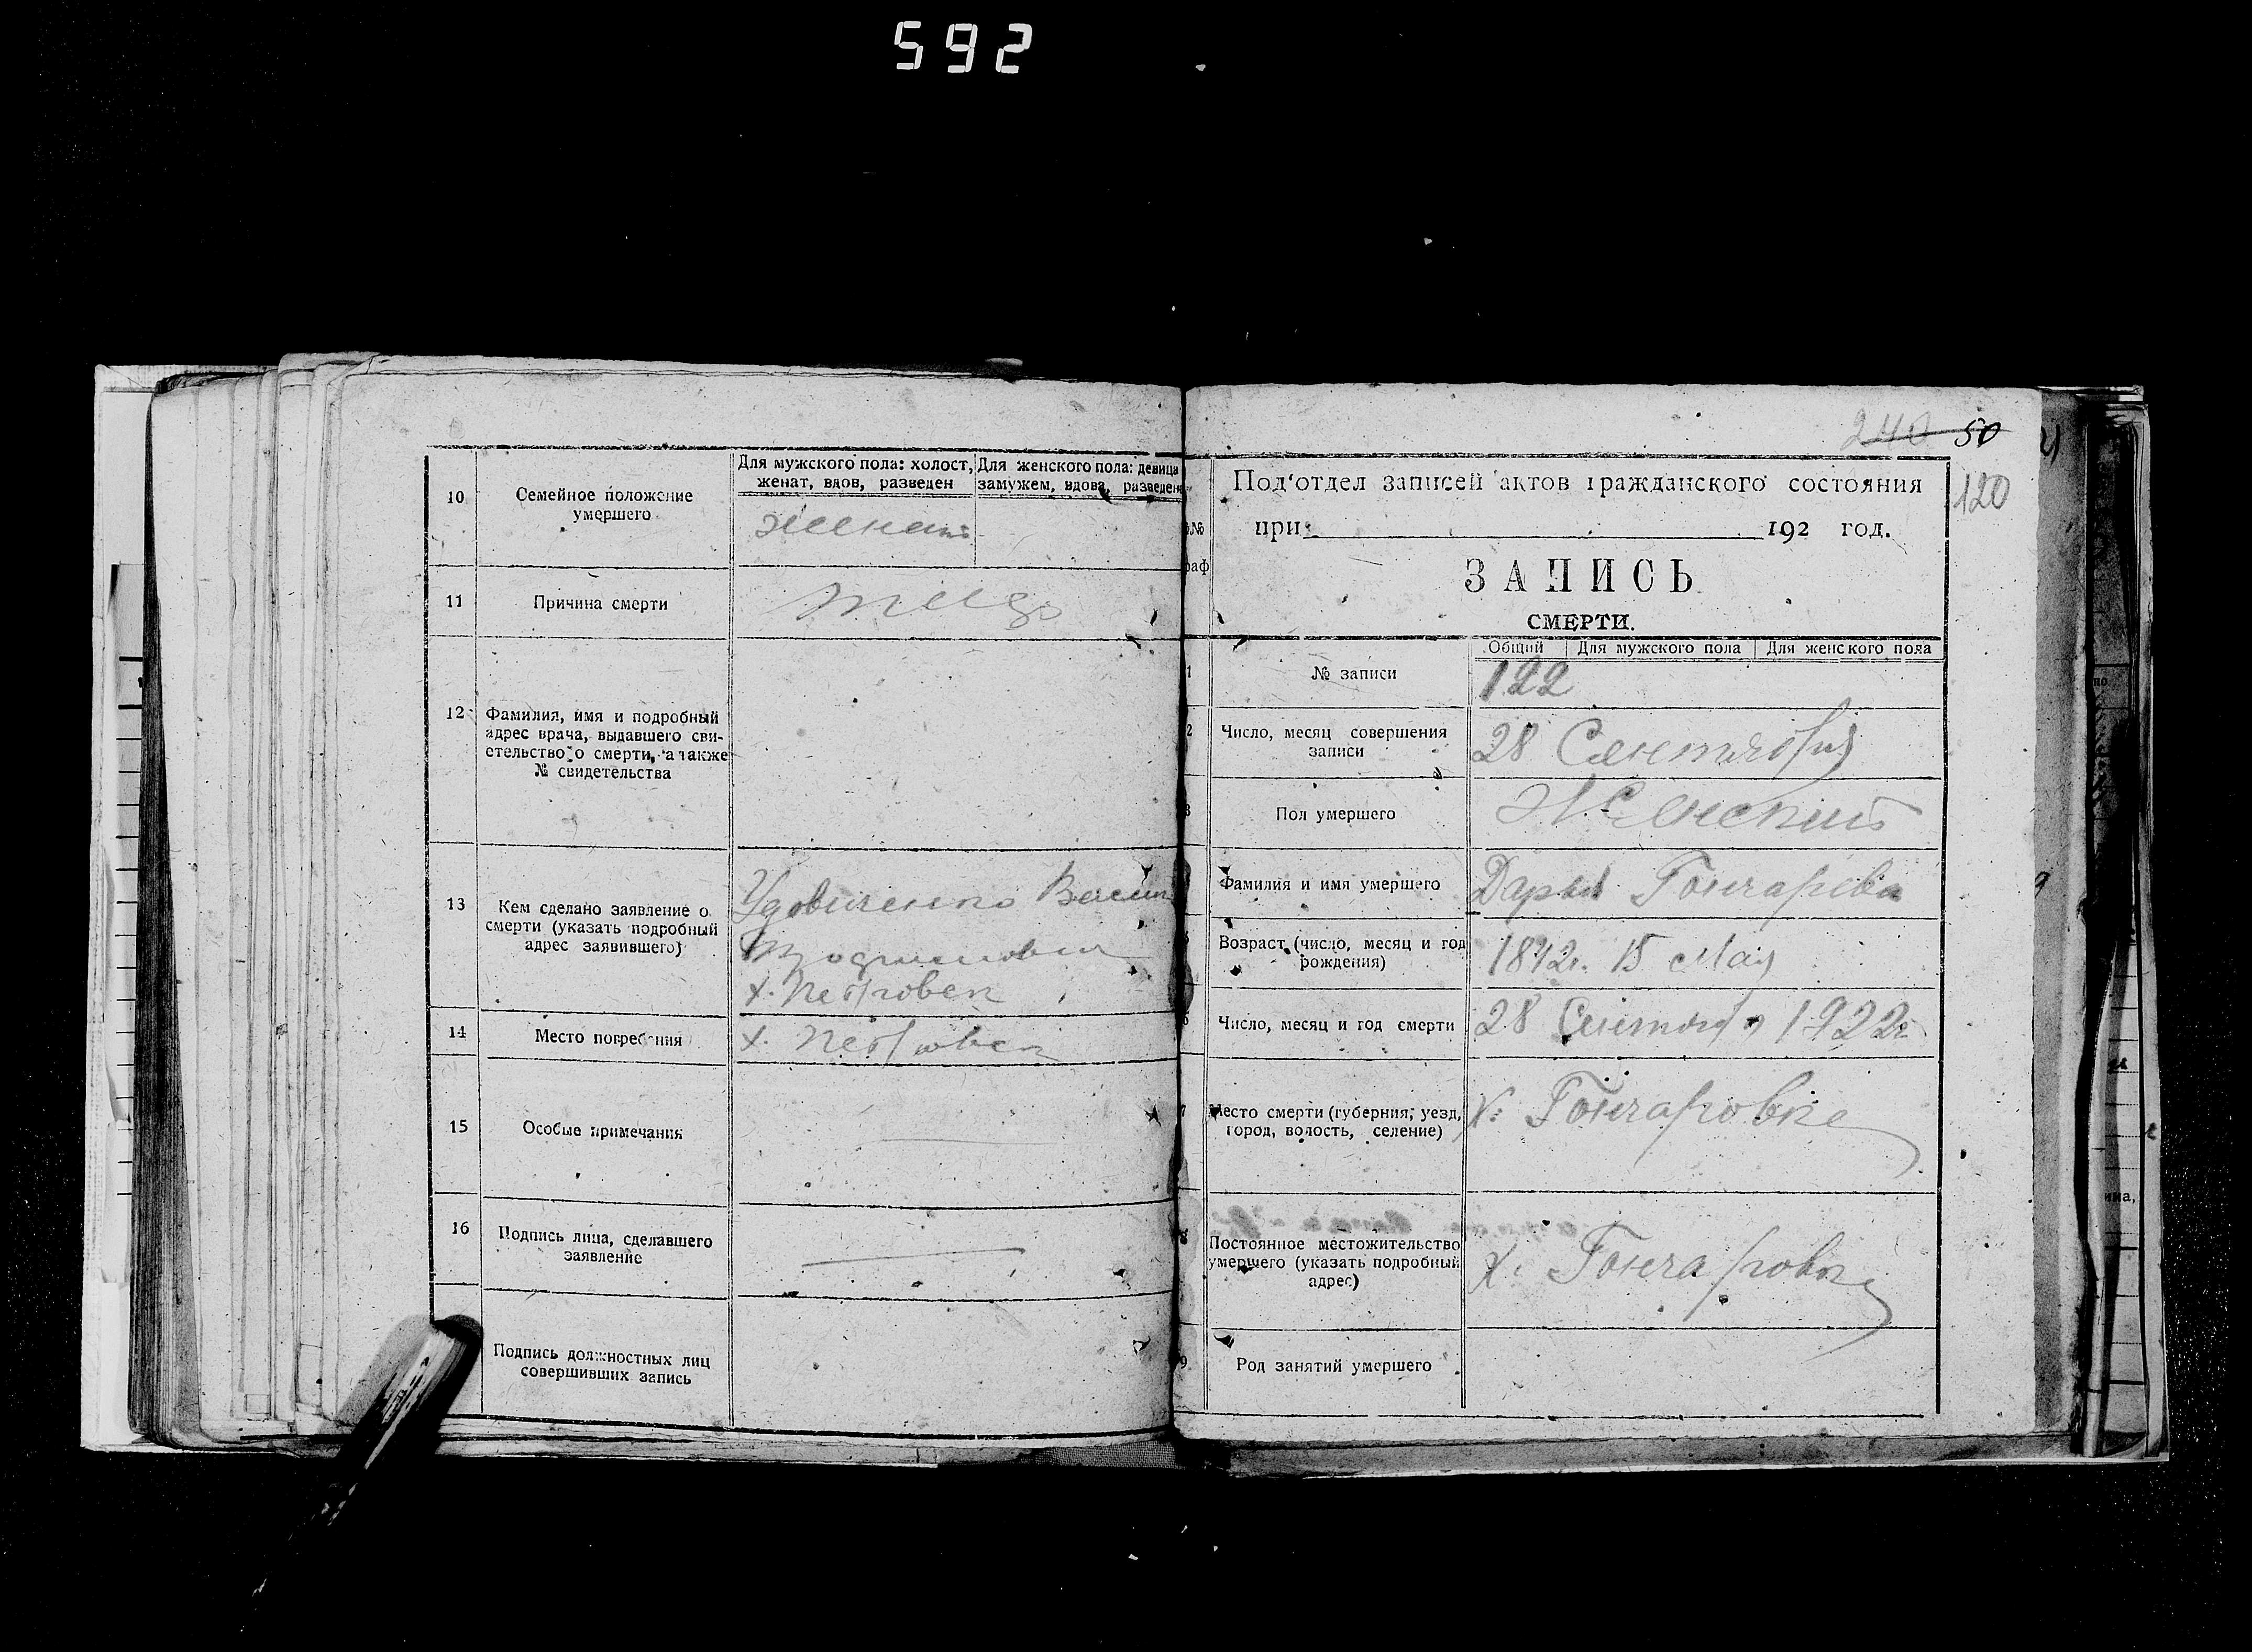 592
10
Семейное положение
умершего
Для мужского пола: холост,
женат, вдов, разведен
Для женского пола: девица
замужем, вдова, разведена
женат
11
Причина смерти
12
Фамилия, имя и подробный
адрес врача, выдавшего сви-
етельство о смерти, а также
№ свидетельства
13
Кем сделано заявление о
смерти (указать подробный
адрес заявившего)
Удовиченко
х. Петровск
14
Место погребения
х. Петровск
15
Особые примечания
16
Подпись лица, сделавшего
заявление
Подпись должностных лиц
совершивших запись
240 50
120
Под'отдел записей актов гражданского состояния
при 192 год.
№
раф
ЗАПИСЬ
СМЕРТИ.
Общий Для мужского пола Для женского пола
1 № записи 122
2 Число, месяц совершения
записи
28 Сентября
3 Пол умершего Женский
Фамилия и имя умершего Дарья Гончарова
Возраст (число, месяц и год
рождения)
1842г. 15 Мая
6 Число, месяц и год смерти 28 Сентября 1922г
7 Место смерти (губерния, уезд,
город, волость, селение)
х. Гончаровке
8 Постоянное местожительство
умершего (указать подробный
адрес)
х. Гончаровке
9 Род занятий умершего